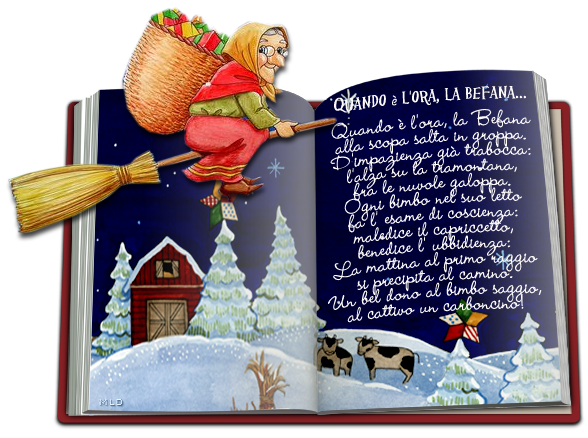 QUANDO è L'ORA, LA BEFANA...
Quando è l'ora, la Befana
alla scopa salta in groppa.
D'impazienza già trabocca:
l'alza su la tramontana,
fra le nuvole galoppa.
Ogni bimbo nel suo letto
fa l' esame di coscienza:
maledice il capriccetto,
benedice l' ubbidienza:
La mattina al primo raggio
si precipita al camino.
Un bel dono al bimbo saggio,
al cattivo un carboncino!
MLD